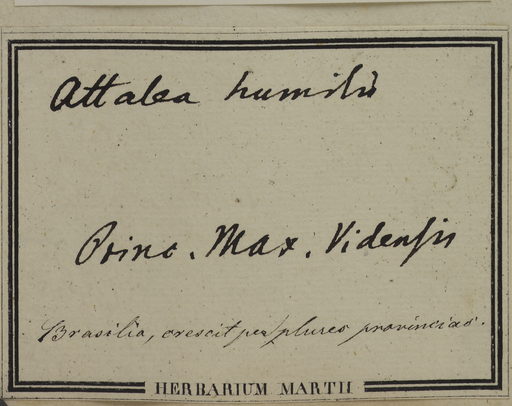 Attalea humilis
Princ. Max. Vidensis
Brasilia, crescit per plures provincias.
HERBARIUM MARTII